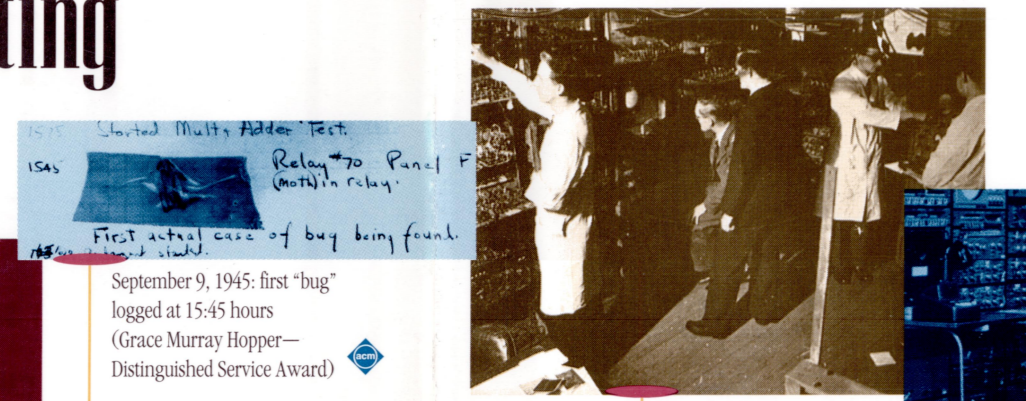 ting
1525 Started Mult+ Adder Test.
1545 Relay #70 Panel F
(moth) in relay.
First actual case of bug being found.
started.
September 9, 1945: first “bug”
logged at 15:45 hours
(Grace Murray Hopper—
Distinguished Service Award)
acm